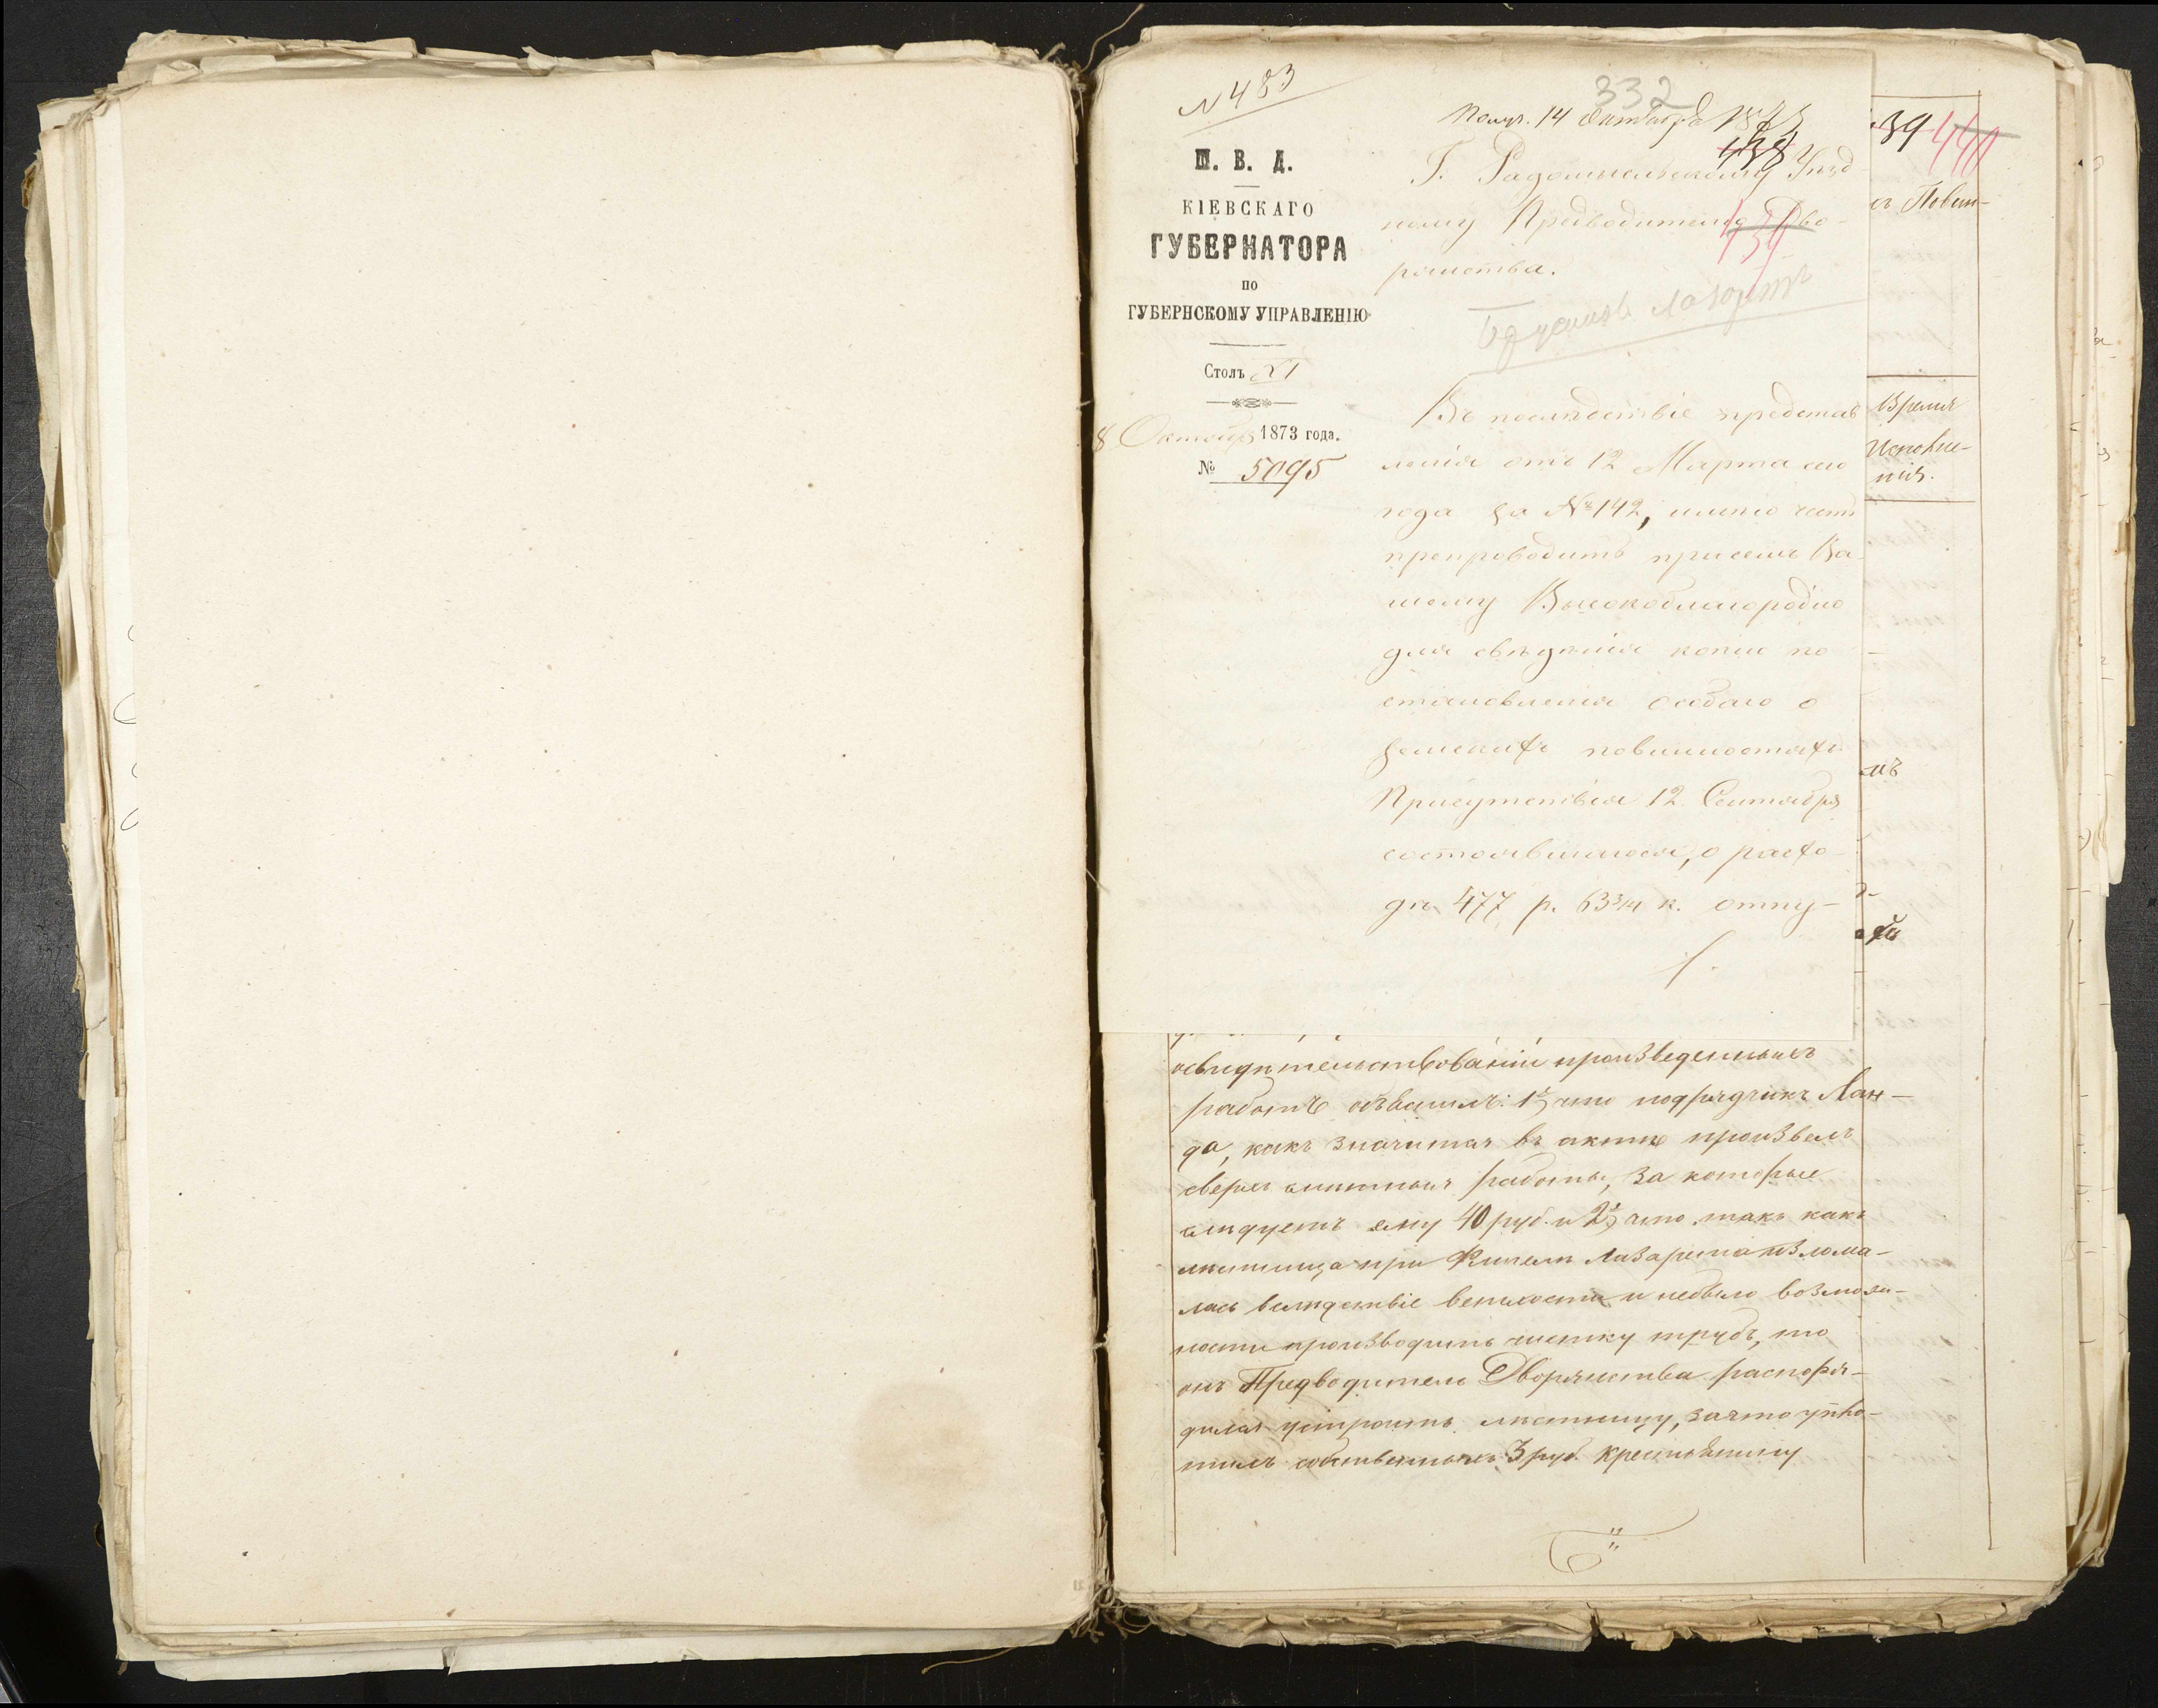 N 483
332
Получ. 14 Октября 1873
438
39
440
М. В. Д.
КІЕВСКАГО
ГУБЕРНАТОРА
ПО
ГУБЕРНСКОМУ УПРАВЛЕНІЮ
Столъ XI
8 Октября 1873 года.
№ 5095
Г. Радомысльскому Уѣзд-
ному Предводителю Дво-
рянства.
Въ послѣдствіе представ
ленія отъ 12 Марта сего
года за № 142, имѣю честь
препроводить присемъ Ва-
шему Высокоблагородію
для свѣдѣнія копію по
становленія Особаго о
земскихъ повинностяхъ
Присутствія 12 Сентября
состоявшагося, о расхо-
дѣ 477 р. 63 3/4 к. отпу-
Время
Исполне-
нія.
освидѣтельствованіи произведенныхъ
работъ объяснилъ: 1е) что подрядчикъ Лан-
да, какъ значится въ актѣ произвелъ
сверхъ смѣтныя работы, за которые
слѣдуетъ ему 40 руб. и 2е) что такъ какъ
лѣстница при Флигелѣ Лазарета изло­ма-
лась вслѣдствіе ветхости и небыло возмож-
ности производить чистку трубъ, то
онъ Предводитель Дворянства распоря-
дился устроить лѣстницу, зачто упла-
тилъ собственныхъ 3 руб. крестьянину